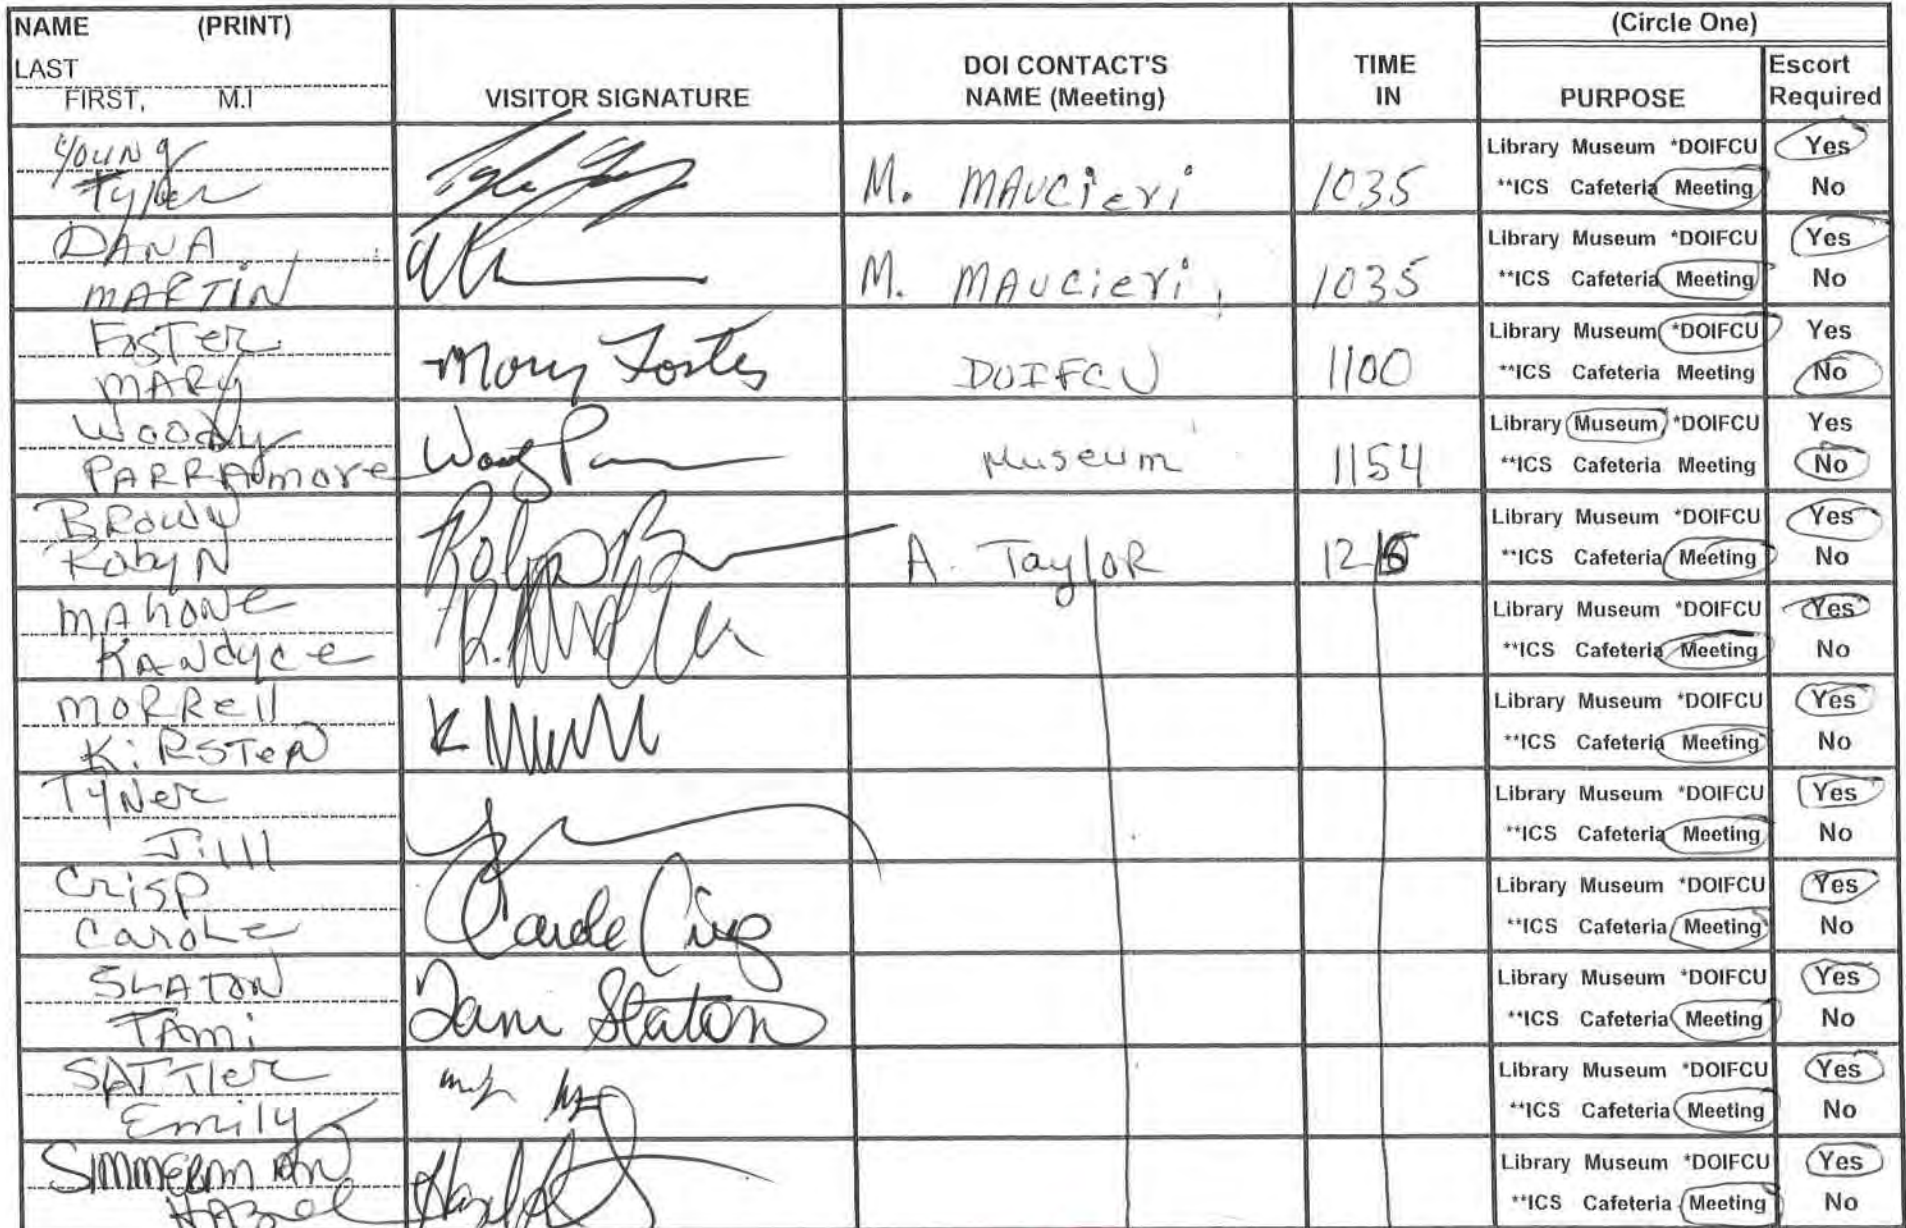 NAME (PRINT)
LAST
FIRST, M.I
VISITOR SIGNATURE
DOI CONTACT'S
NAME (Meeting)
TIME
IN
(Circle One)
PURPOSE
Escort
Required
Young
Tyler
M. MAUCieri
1035
Library Museum *DOIFCU Yes
**ICS Cafeteria Meeting No
DANA
MARTIN
M. MAUCieri
1035
Library Museum *DOIFCU Yes
**ICS Cafeteria Meeting No
FosTer
MARy
Mary Foster
DOIFCU
1100
Library Museum *DOIFCU Yes
**ICS Cafeteria Meeting No
Woody
PARRAmore
Museum
1154
Library Museum *DOIFCU Yes
**ICS Cafeteria Meeting No
BRowN
RobyN
A. TayloR
Library Museum *DOIFCU Yes
**ICS Cafeteria Meeting No
MAhoNe
KANdyce
Library Museum *DOIFCU Yes
**ICS Cafeteria Meeting No
MoRRell
KiRSTeN
Library Museum *DOIFCU Yes
**ICS Cafeteria Meeting No
TyNer
Jill
Library Museum *DOIFCU Yes
**ICS Cafeteria Meeting No
Crisp
CaroLe
Carole Crisp
Library Museum *DOIFCU Yes
**ICS Cafeteria Meeting No
TAMi
Tami Staton
Library Museum *DOIFCU Yes
**ICS Cafeteria Meeting No
SATTler
Emily
Library Museum *DOIFCU Yes
**ICS Cafeteria Meeting No
SIMMERMAN
HAZel
Library Museum *DOIFCU Yes
**ICS Cafeteria Meeting No